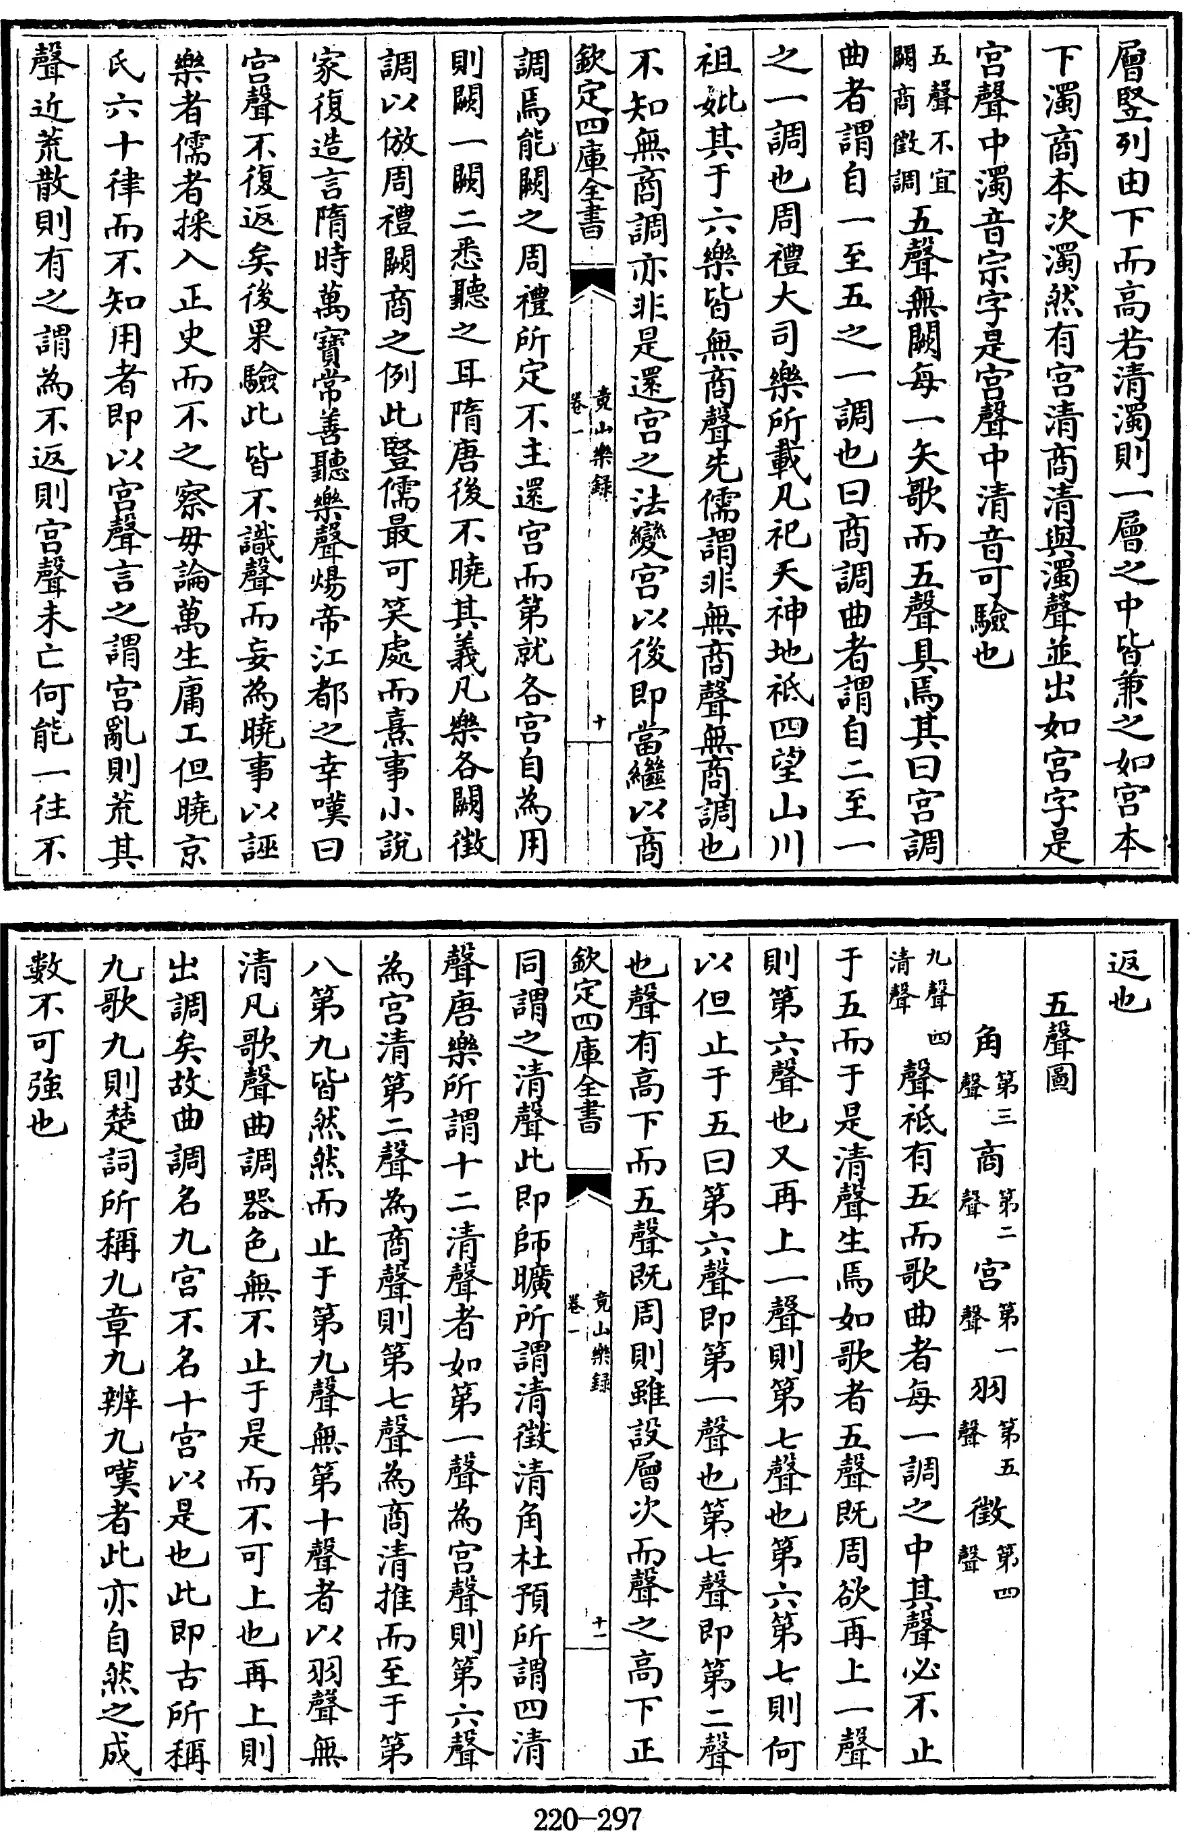 層竪列由下而高若清濁則一層之中皆兼之如宮本
下濁商本次濁然有宮清商清與濁聲並出如宮字是
宮聲中濁音宗字是宮聲中清音可驗也
五聲不宜
闕商徵調
五聲無闕每一矢歌而五聲具焉其曰宮調
曲者謂自一至五之一調也曰商調曲者謂自二至一
之一調也周禮大司樂所載凡祀天神地祇四望山川
祖妣其于六樂皆無商聲先儒謂非無商聲無商調也
不知無商調亦非是還宮之法變宮以後即當繼以商
欽定四庫全書
竟山樂錄
卷一
十
調焉能闕之周禮所定不主還宮而第就各宮自為用
則闕一闕二悉聽之耳隋唐後不曉其義凡樂各闕徵
調以倣周禮闕商之例此豎儒最可笑處而熹事小說
家復造言隋時萬寶常善聽樂聲煬帝江都之幸嘆曰
宮聲不復返矣後果驗此皆不識聲而妄為曉事以誣
樂者儒者採入正史而不之察毋論萬生庸工但曉京
氏六十律而不知用者即以宮聲言之謂宮亂則荒其
聲近荒散則有之謂為不返則宮聲未亡何能一往不
返也
五聲圖
角第三聲 商第二聲 宮第一聲 羽第五聲 徵第四聲
九聲四
清聲
聲祗有五而歌曲者每一調之中其聲必不止
于五而于是清聲生焉如歌者五聲既周欲再上一聲
則第六聲也又再上一聲則第七聲也第六第七則何
以但止于五曰第六聲即第一聲也第七聲即第二聲
也聲有高下而五聲既周則雖設層次而聲之高下正
欽定四庫全書
竟山樂錄
卷一
十一
同謂之清聲此即師曠所謂清徵清角杜預所謂四清
聲唐樂所謂十二清聲者如第一聲為宮聲則第六聲
為宮清第二聲為商聲則第七聲為商清推而至于第
八第九皆然然而止于第九聲無第十聲者以羽聲無
清凡歌聲曲調器色無不止于是而不可上也再上則
出調矣故曲調名九宮不名十宮以是也此即古所稱
九歌九則楚詞所稱九章九辨九嘆者此亦自然之成
數不可強也
220-297